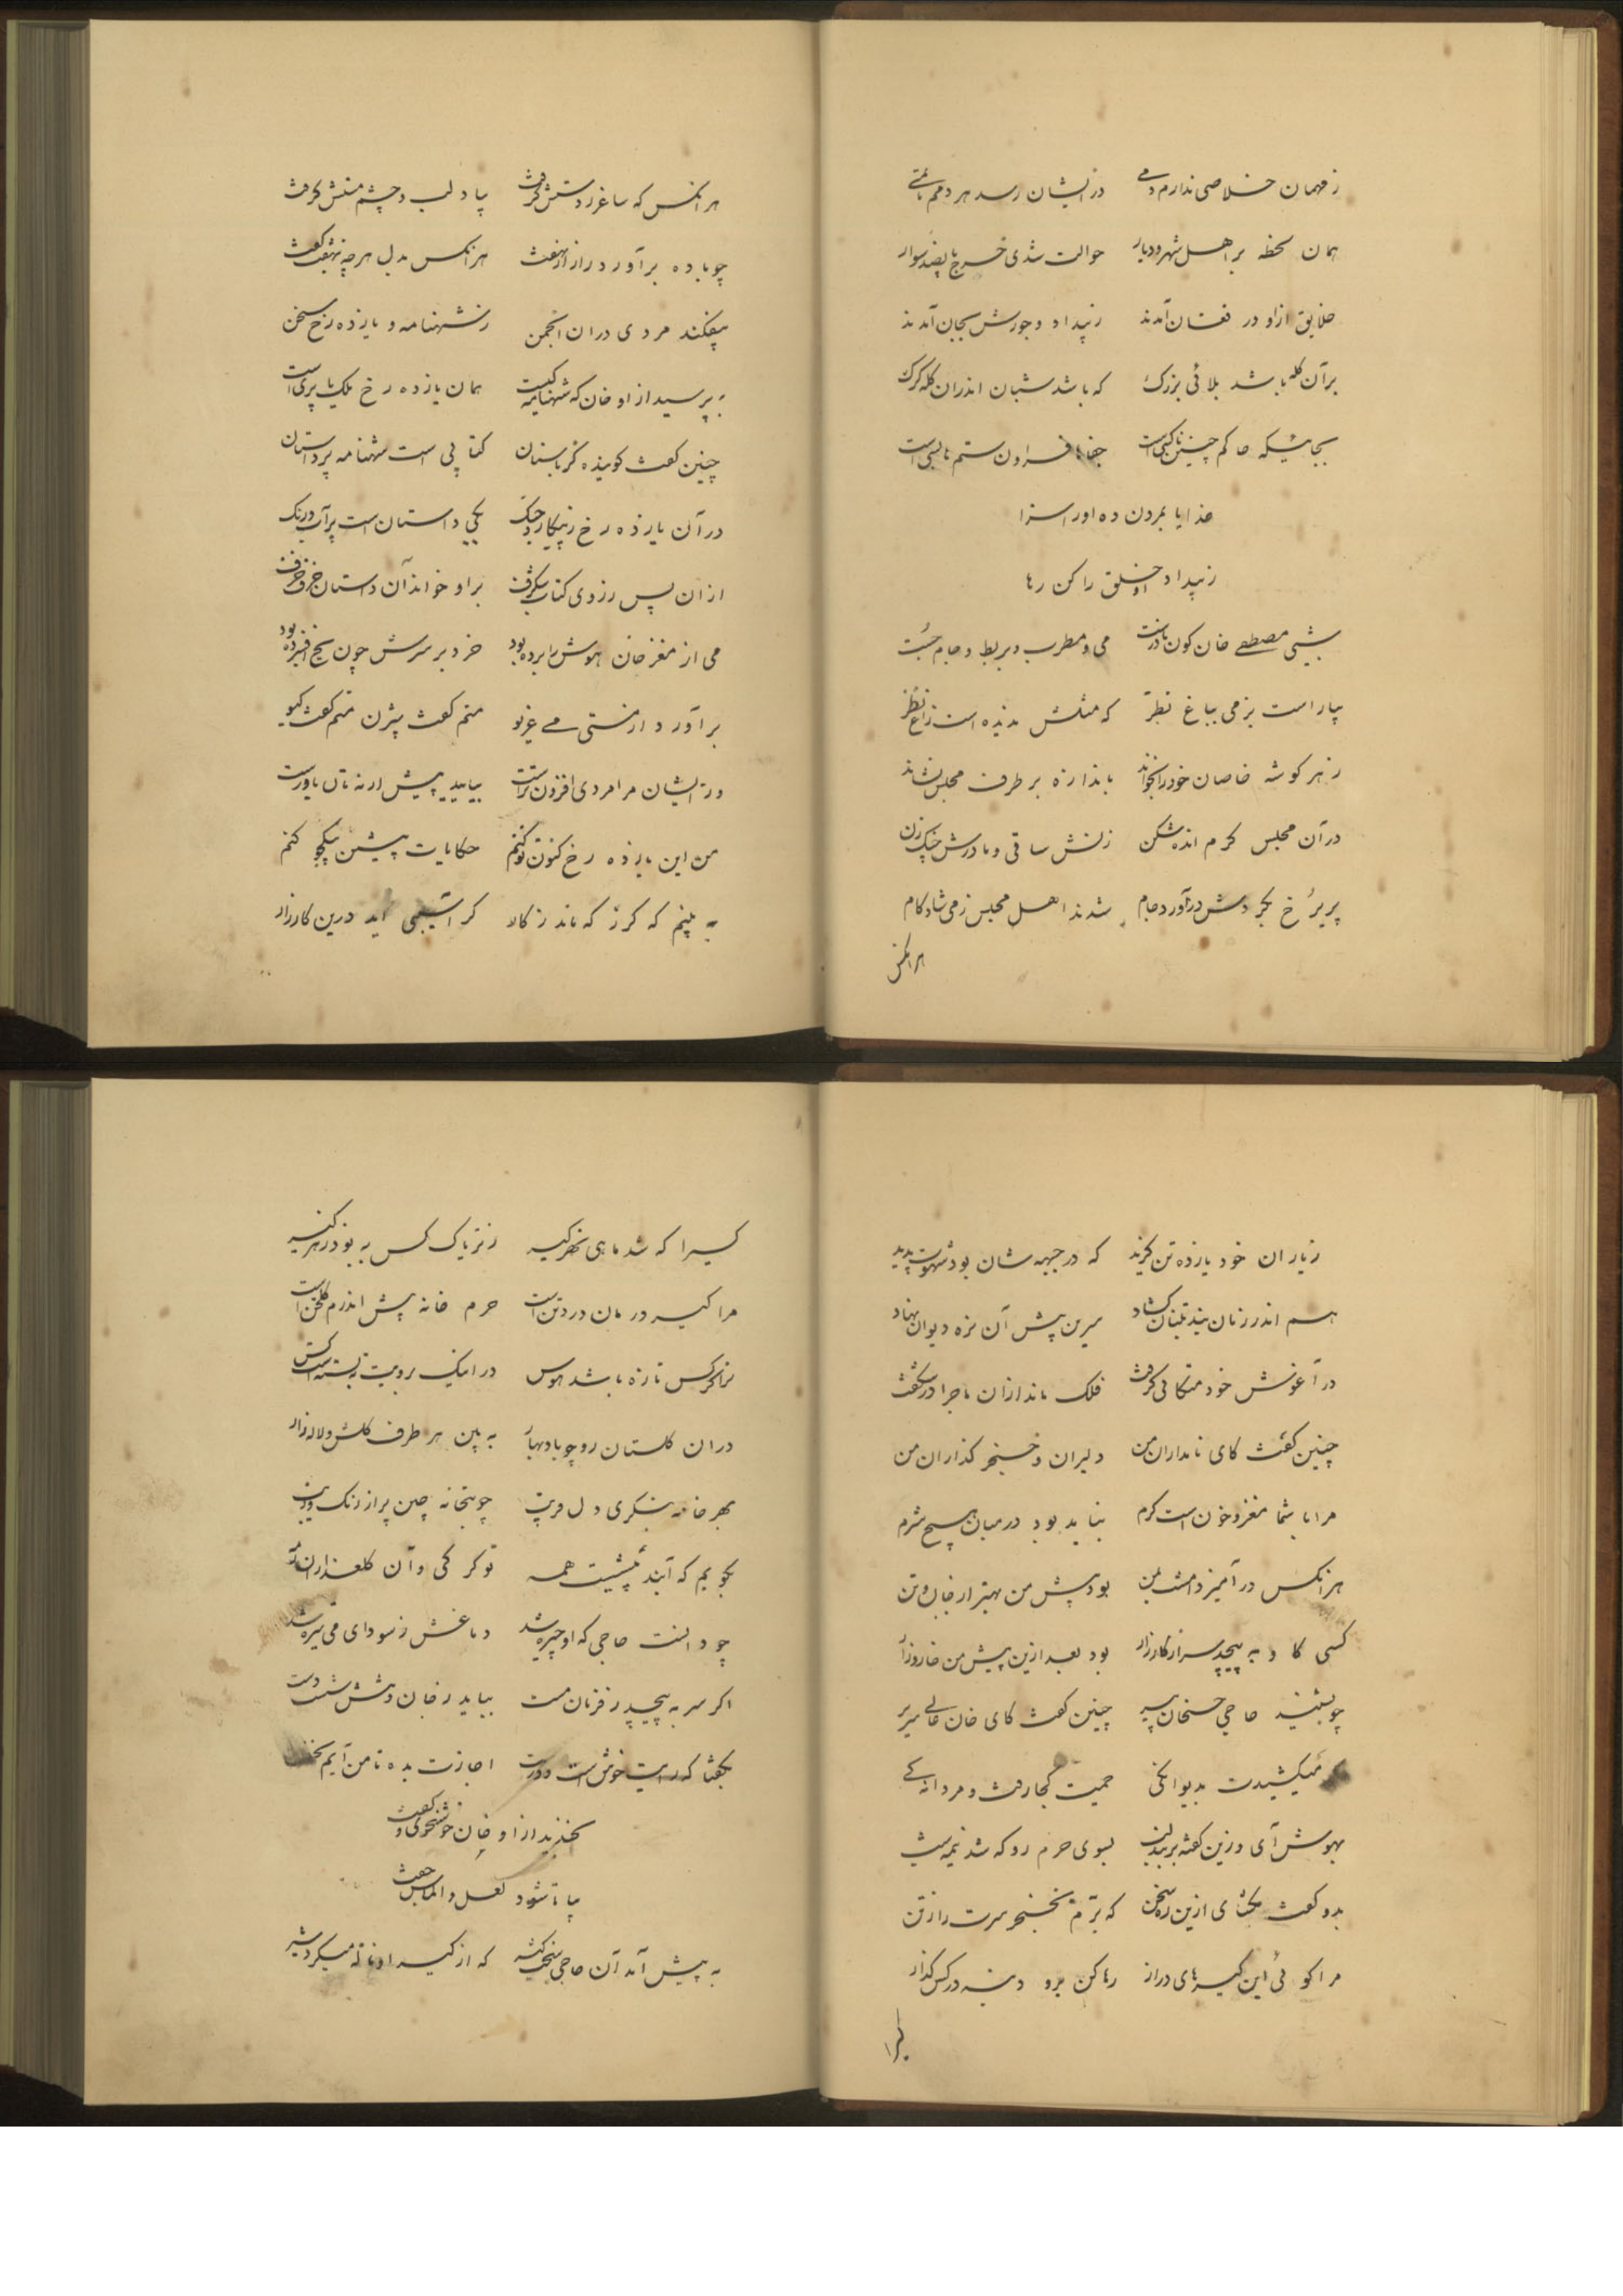 ز مهمان خلاصی ندارم دمی در ایشان رسد هر دمم ماتمی
همان لحظه بر اهل شهر و دیار حوالت شدی خرج پانصد سوار
خلایق ازاو در فغان آمدند ز بیداد و جورش بجان آمدند
برآن کله باشد بلائی بزرک که باشد شبان اندران کله کرک
بجائیکه حاکم چنین ناکسی است جفاها فراون ستم ها بسی است
خدایا بمردن ده اورا سزا
ز بیداد او خلق را کن رها
شبی مصطفی خان کون نادرست می و مطرب و بربط و جام جست
بیاراست بزمی بباغ نظر که مثلش ندیده است زاغ نظر
ز هر کوشه خاصان خود را بخواند باندازه بر طرف مجلس نشاند
درآن مجلس کرم انده شکن زنش ساقی و مادرش چنک زن
پریرخ بکردش درآورد جام شدند اهل مجلس ز می شادکام
هرانکس
هرانکس که ساغر ز دستش کرفت بپا دلب و چشم مستش کرفت
چو باده برآورد راز از نهفت هرانکس بدل هرچه بنهفت کفت
بیفکند مردی دران انجمن ز شهنامه و یازده رخ سخن
به پرسید از او خان که شهنامه کیست همان یازده رخ ملک یا پری است
چنین کفت کوینده کز باستان کتابی است شهنامه پرداستان
درآن یازده رخ ز پیکار و جنک یکی داستان است پرآب و رنک
ازان پس ز روی کتاب شکرف براو خواند آن داستان حرف حرف
می از مغز خان هوش را برده بود خرد بر سرش چون یخ افسرده بود
برآورد از مستی می غریو منم کفت بیژن منم کفت کیو
در ایشان مرا مردی افزون تر است بیایید پیش ار نه تان باور است
من این یازده رخ کنون نو کنم حکایات پیشین بیکجو کنم
به بینم که کرز که ماند ز کار کرا آسیبی آید درین کارزار
ز یاران خود یازده تن کزید که در جبهه شان بود شهوت پدید
هم اندر زمان بند تنبان کشاد سرین پیش آن نره دیوان نهاد
درآغوش خود متکائی کرفت فلک ماند ازان ماجرا در شکفت
چنین کفت کای نامداران من دلیران و خنجر کذاران من
مرا با شما مغز و خون است کرم نباید بود درمیان هیچ شرم
هرانکس درآمیزد امشب بمن بود پیش من بهتر از جان و تن
کسی کاو به پیچد سر از کارزار بود بعد ازین پیش من خار و زار
چو بشنید حاجی حسنخان پیر چنین کفت کای خان عالی سریر
میکشیدت بدیوانکی حمیت کجا رفت و مردانه کی
بهوش آی و زین کفته بربند لب بسوی حرم رو که شد نیمه شب
بدو کفت بکشای ازین ره سخن که برم بخنجر سرت را ز تن
مرا کوئی این کیرهای دراز رها کن برو دنبه در کس کذار
کیرا
کسیرا که شد ماهی نهر کیر ز تریاک کس به بود زهر کیر
مرا کیر درمان درد تن است حرم خانه پیش اندرم کلخن است
ترا کر کس تازه باشد هوس در اینک برویت نبسته است کس
دران کلستان رو چو باد بهار به بین هر طرف کلش و لاله زار
بهر خانه بنکری دلفریب چو بتخانه چین پر از رنک و زیب
بکویم که آیند پیشت همه تو کرکی و آن کلعذاران رمه
چو دانست حاجی که او چیره شد دماغش ز سودای می تیره شد
اکر سر به پیچید ز فرمان مست بباید ز جان دستش شست
بکفتا که رایت خوش است و درست اجازت بده تا من آیم نخست
بخندید از او خان خوشخوی و کفت
بیا تا شود لعل و الماس جفت
به پیش آمد آن حاجی سخت کیر که از کیر او ناله میکرد شیر